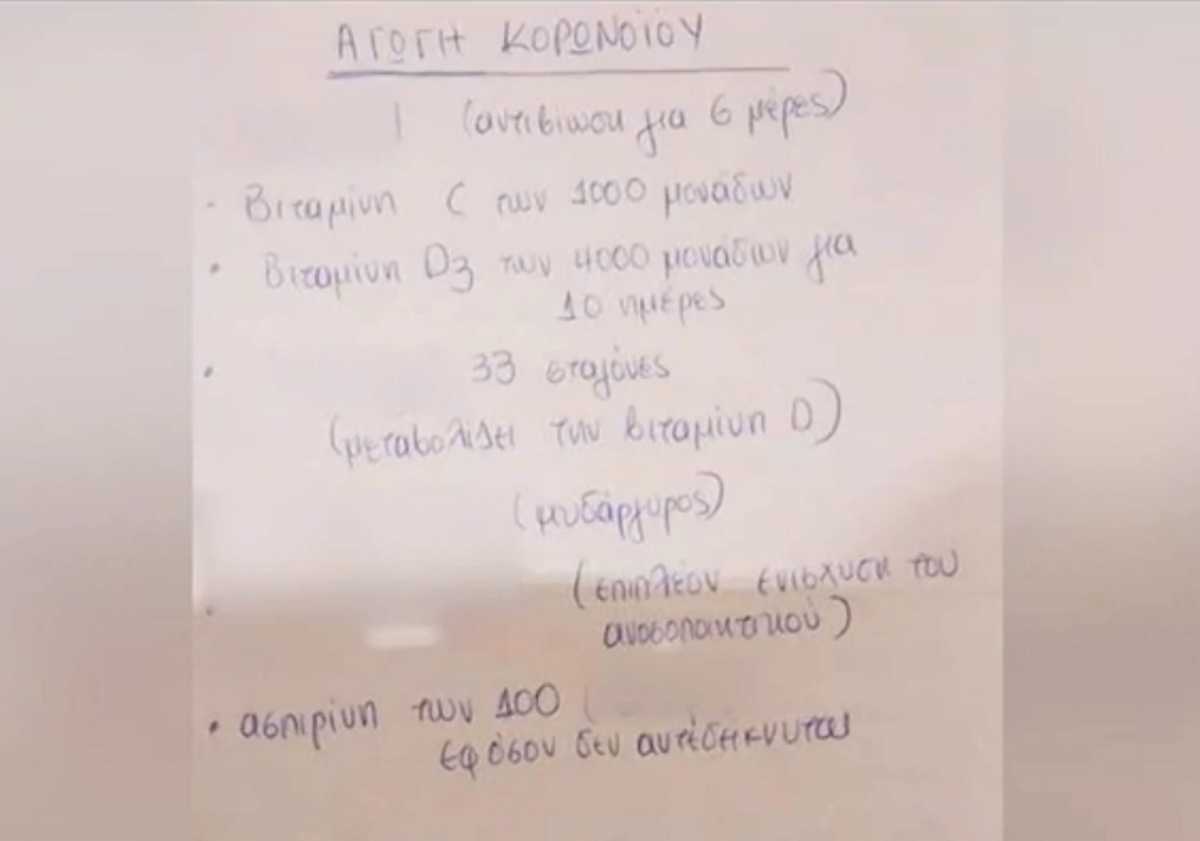 ΑΓΩΓΗ ΚΟΡΩΝΟΪΟΥ
(αντιβίωση για 6 μέρες)
· Βιταμίνη C των 1000 μονάδων
· Βιταμίνη D3 των 4000 μονάδων για
10 ημέρες
· 33 σταγόνες
(μεταβολίζει την βιταμίνη D)
(μυδάργυρος)
(επιπλέον ενίσχυση του
ανοσοποιητικού)
· ασπιρίνη των 100
εφόσον δεν αντεδείκνυται